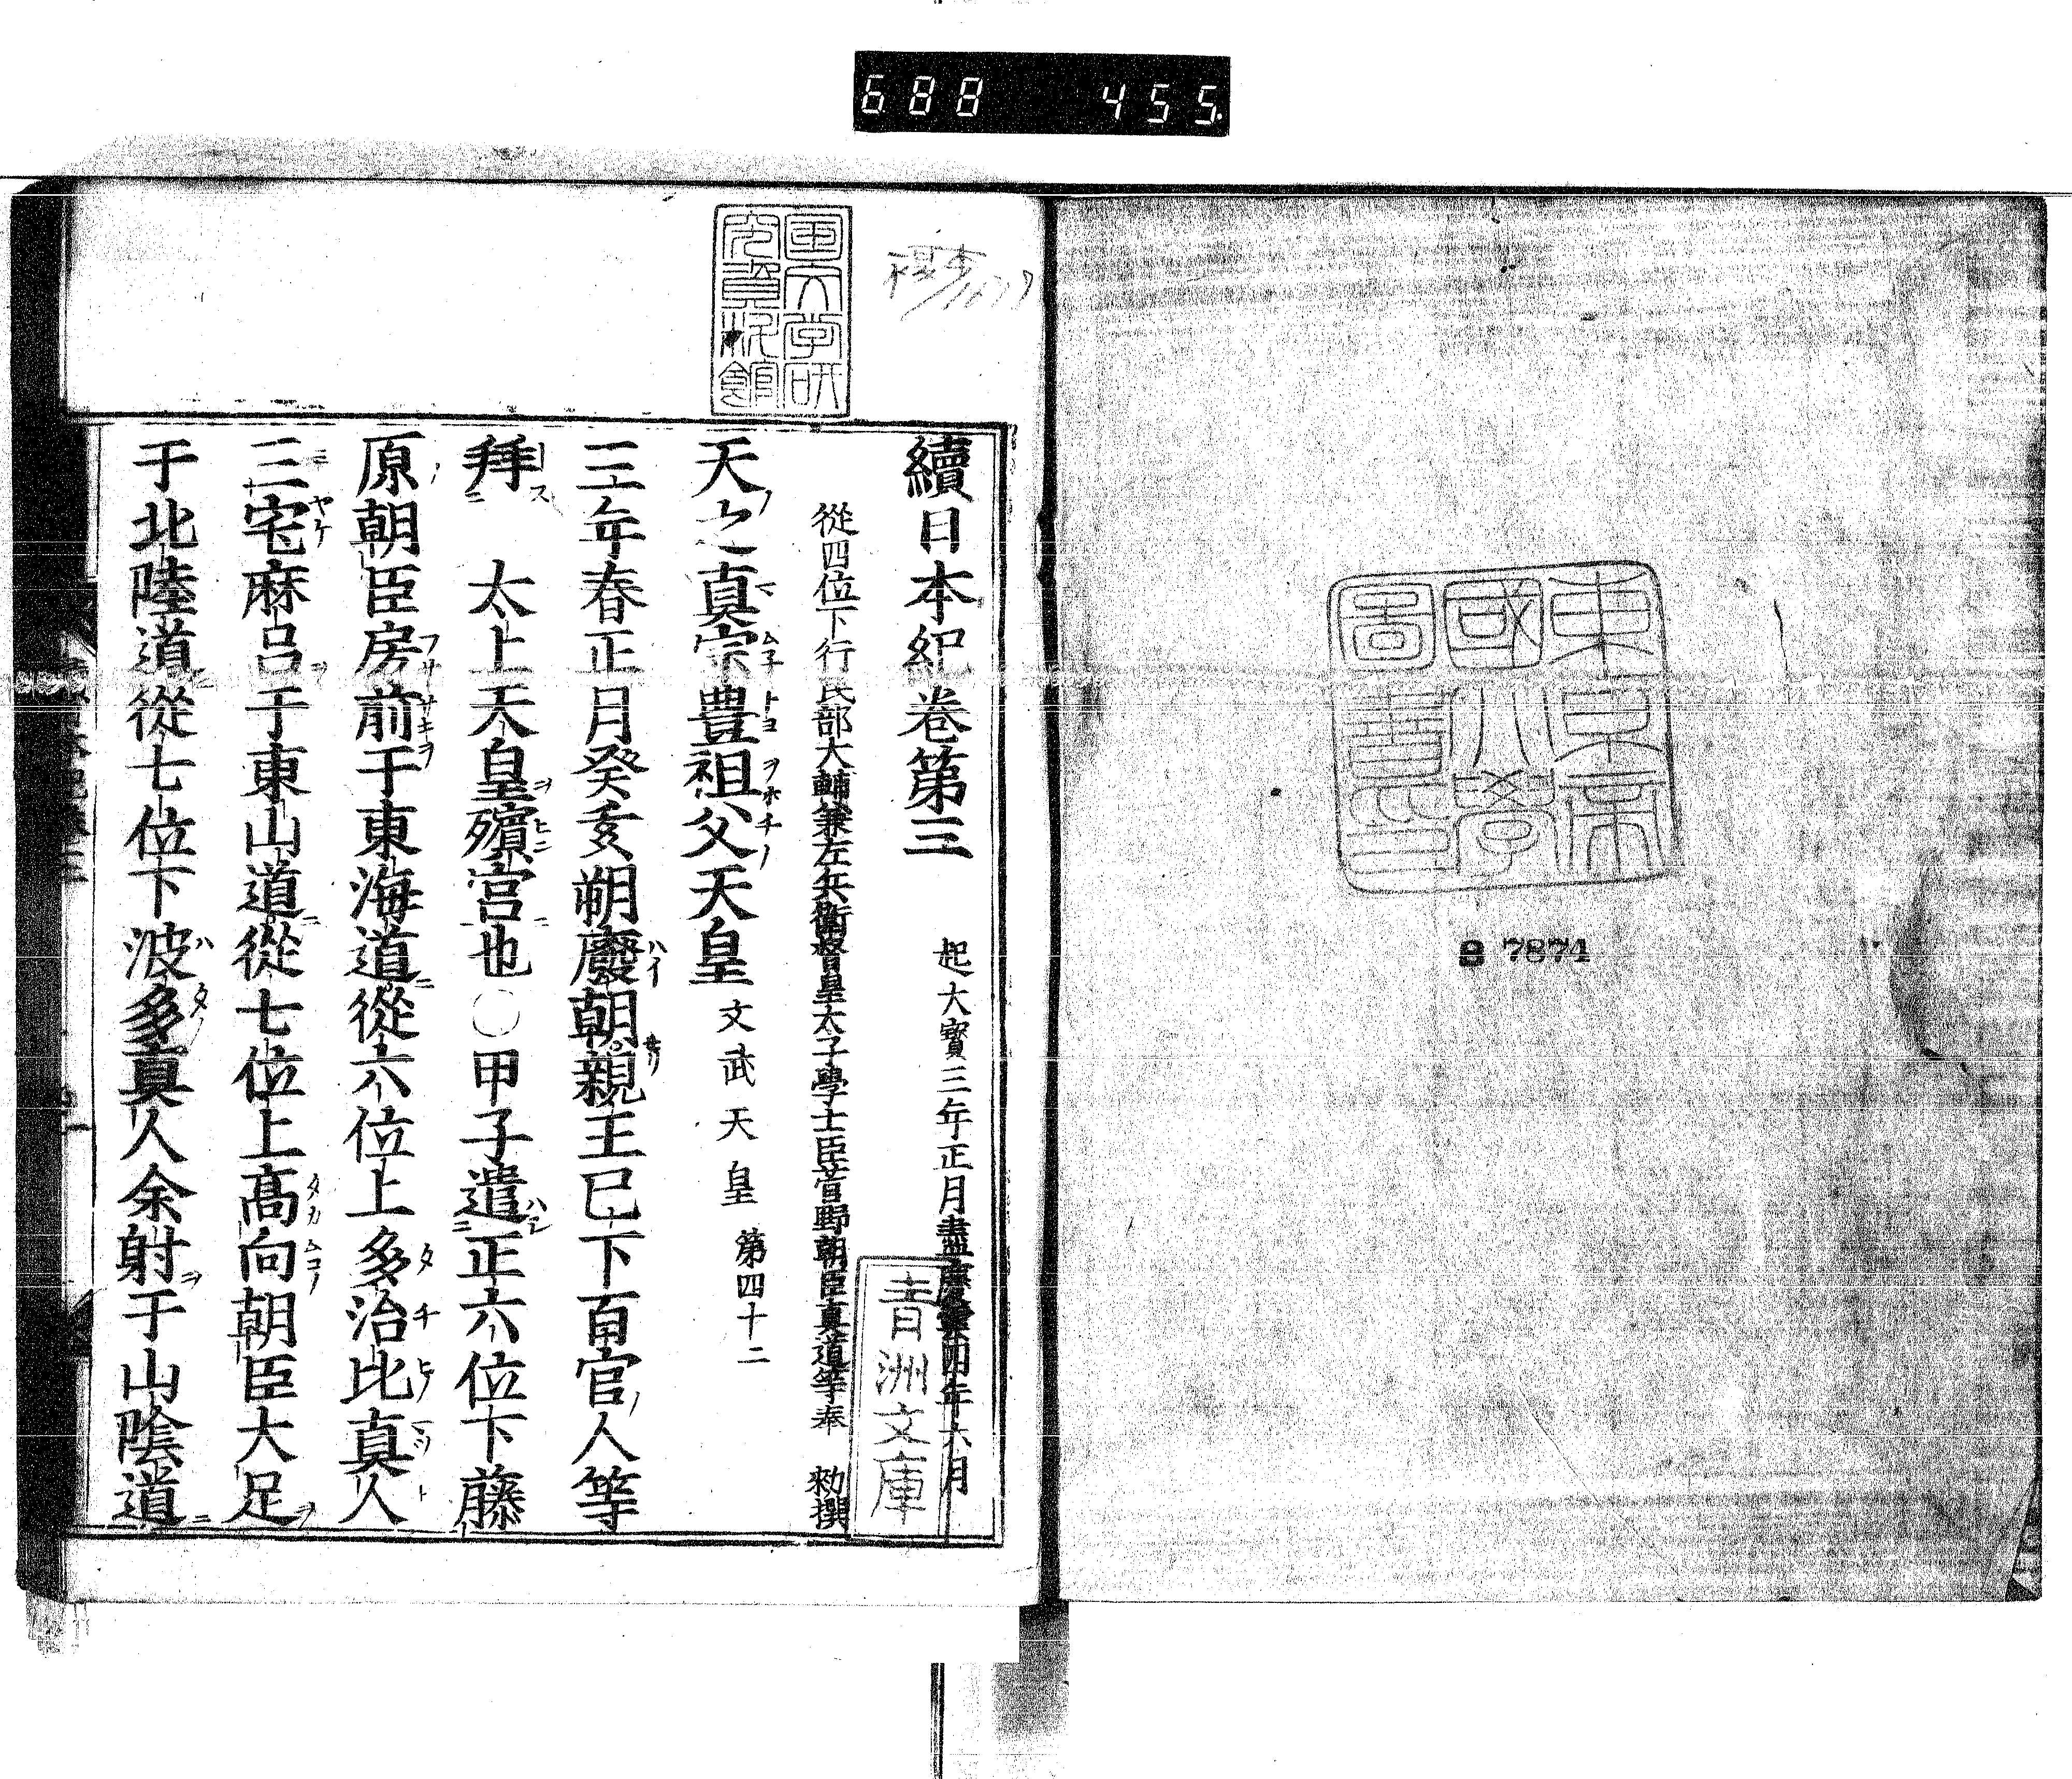 688 455
東京帝
國大學
圖書印
B 7874
国文学研
究資料館
續日本紀卷第三 起大寶三年正月盡慶雲四年六月
青洲文庫
從四位下行民部大輔兼左兵衛督皇太子學士臣菅野朝臣真道等奉 勅撰
天之真宗豊祖父天皇 文武天皇 第四十二
三年春正月癸亥朔廢朝親王已下百官人等
拜 太上天皇殯宮也○甲子遣正六位下藤
原朝臣房前于東海道從六位上多治比真人
三宅麻呂于東山道從七位上高向朝臣大足
于北陸道從七位下波多真人余射于山陰道